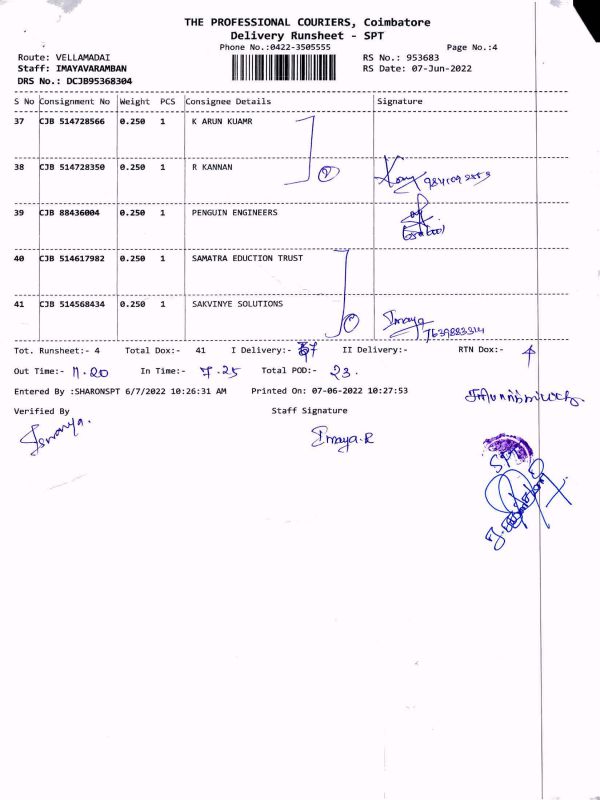 THE PROFESSIONAL COURIERS, Coimbatore
Delivery Runsheet - SPT
Phone No.:0422-3505555 Page No.:4
Route: VELLAMADAI RS No.: 953683
Staff: IMAYAVARAMBAN RS Date: 07-Jun-2022
DRS No.: DCJB95368304
S No Consignment No Weight PCS Consignee Details Signature
37 CJB 514728566 0.250 1 K ARUN KUAMR
38 CJB 514728350 0.250 1 R KANNAN
39 CJB 88436004 0.250 1 PENGUIN ENGINEERS
40 CJB 514617982 0.250 1 SAMATRA EDUCTION TRUST
41 CJB 514568434 0.250 1 SAKVINYE SOLUTIONS
Imaya
7639883314
Tot. Runsheet:- 4 Total Dox:- 41 I Delivery:- II Delivery:- RTN Dox:-
Out Time:- 11.20 In Time:- 7.25 Total POD:- 23.
Entered By :SHARONSPT 6/7/2022 10:26:31 AM Printed On: 07-06-2022 10:27:53
Verified By Staff Signature
Imaya.R
SPT